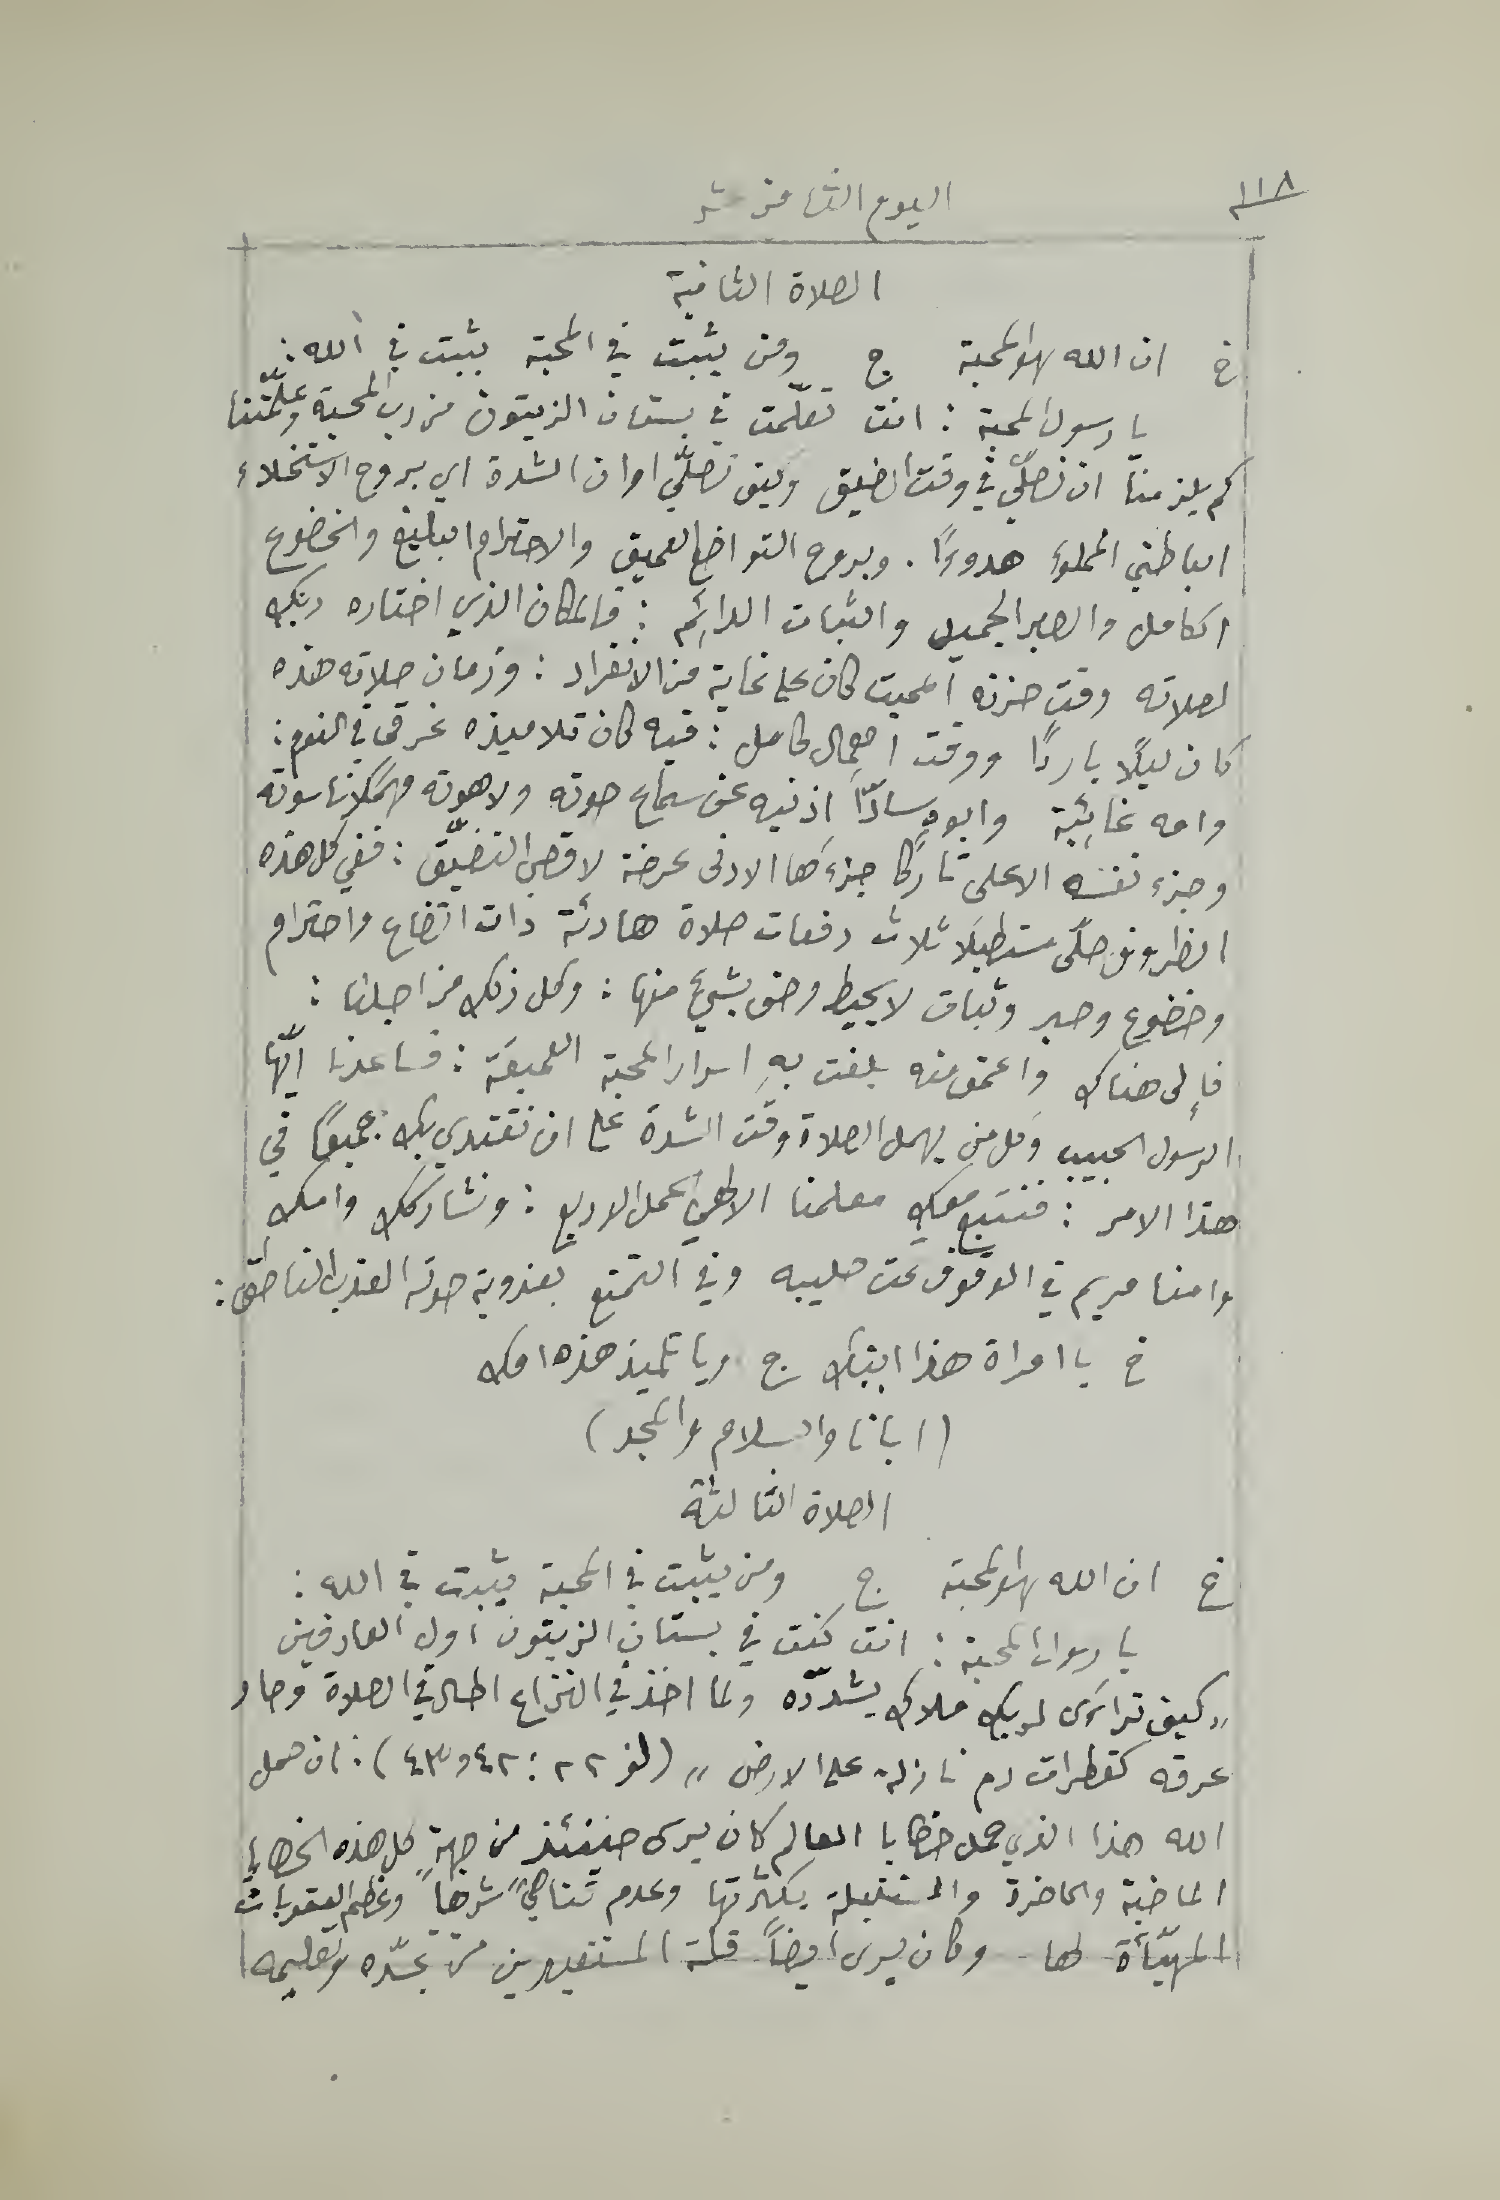 ١١٨
اليوم الثامن عشر
الصلاة الثانية
خ ان الله هو المحبة ج ومن يثبت في المحبة يثبت في الله :
يا رسول المحبة : انت تعلّمت في بستان الزيتون من رب المحبة وعلّمتنا
كم يلزمنا ان نصلّي في وقت الضيق وكيف نصلّي اوان الشدة اي بروح الاستخلاء
الباطني المملوء هدوءًا . وبروح التواضع العميق والاحترام البليغ والخضوع
الكامل والصبر الجميل والثبات الدائم : فالمكان الذي اختاره ربك
لصلاته وقت حزنه المميت كان على غاية من الانفراد : وزمان صلاته هذه
كان ليلًا باردًا ووقت اهمال كامل : فيه كان تلاميذه غرقى في النوم :
وامه غائبة وابوه سادًّا اذنيه عن سماع صوته ولاهوته مهملًا ناسوته
وجزء نفسه الاعلى تاركًا جزءَها الادنى عرضة لاقصى التضيّق : ففي كل هذه
الظروف صلّى مستطيلًا ثلاث دفعات صلاة هادئة ذات اتضاع واحترام
وخضوع وصبر وثبات لا يحيط وصف بشيءٍ منها : وكل ذلك من اجلنا :
فإلى هناك واعمق منه بلغت بهِ اسرار المحبة العميقة : فساعدنا ايّها
الرسول الحبيب وكل من يهمل الصلاة وقت الشدة على ان نقتدي بك جميعًا في
هذا الامر : فنتبع معك معلمنا الالهي الحمل الوديع : ونشاركك وامك
وامنا مريم في الوقوف تحت صليبه وفي التمتع بعذوبة صوته العذب الناطق :
خ يا امراة هذا ابنك ج ويا تلميذ هذه امك
(ابانا والسلام والمجد)
الصلاة الثالثة
خ ان الله هو المحبة ج ومن يثبت في المحبة يثبت في الله :
يا رسول المحبة : انت كنت في بستان الزيتون اول العارفين
" كيف تراءى لربك ملاك يشدّده ولما اخذ في النزاع اطال في الصلاة وصار
عرقه كقطرات دم نازلة على الارض " (لو ٢٢ : ٤٢ و٤٣) : ان حمل
الله هذا الذي حمل خطايا العالم كان يرى حينئذ من جهةٍ كل هذه الخطايا
الماضية والحاضرة والمستقبلة بكثرتها وعدم تناهي شرها وعظم العقوبات
المهيّأة لها - وكان يرى ايضاً قلة المستفيدين من تجسّده وتعليمه